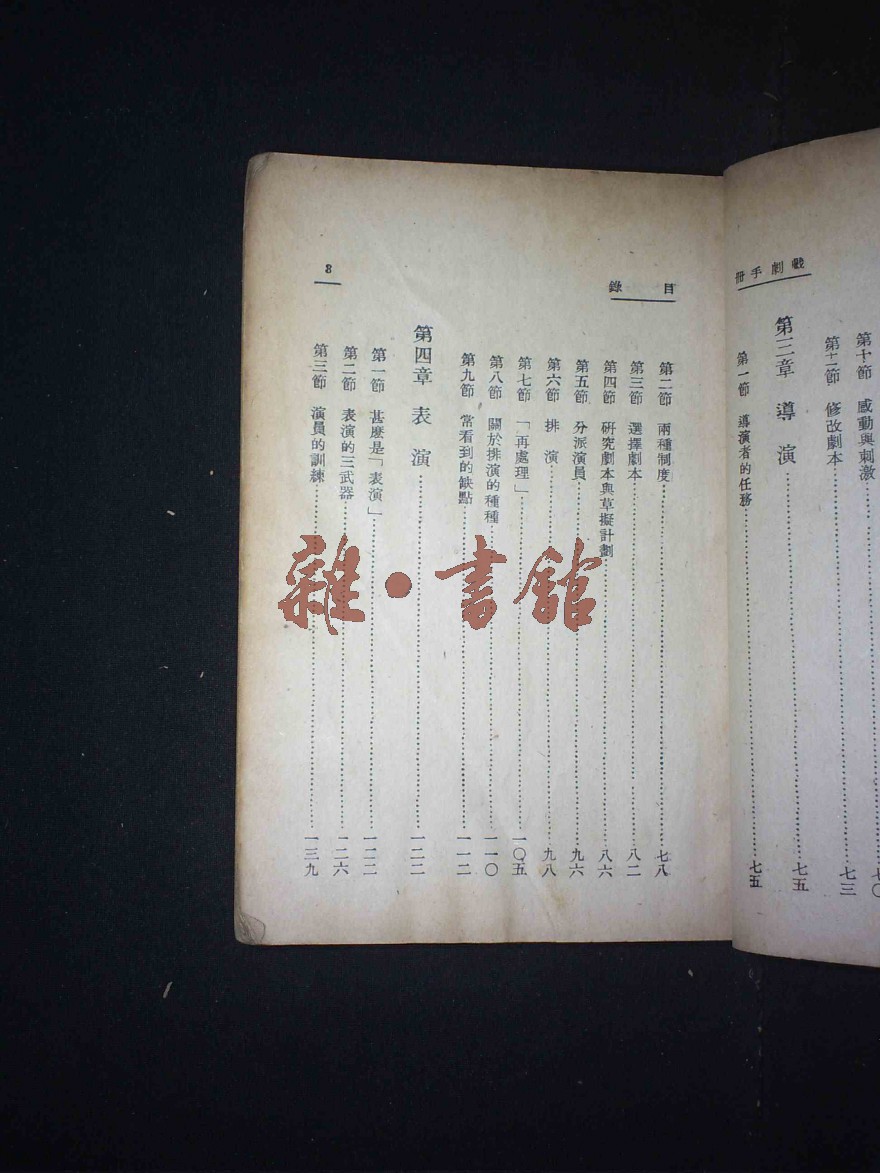 戲劇手冊
第十節　感動與刺激……七〇
第十二節　修改劇本……七三
第三章　導演……七五
第一節　導演者的任務……七五
目錄
第二節　兩種制度……七八
第三節　選擇劇本……八二
第四節　研究劇本與草擬計劃……八六
第五節　分派演員……九六
第六節　排演……九八
第七節　「再處理」……一〇五
第八節　關於排演的種種……一一〇
第九節　常看到的缺點……一一二
第四章　表演……一二二
第一節　甚麽是「表演」……一二二
第二節　表演的三武器……一二六
第三節　演員的訓練……一三九
8
雜·書館